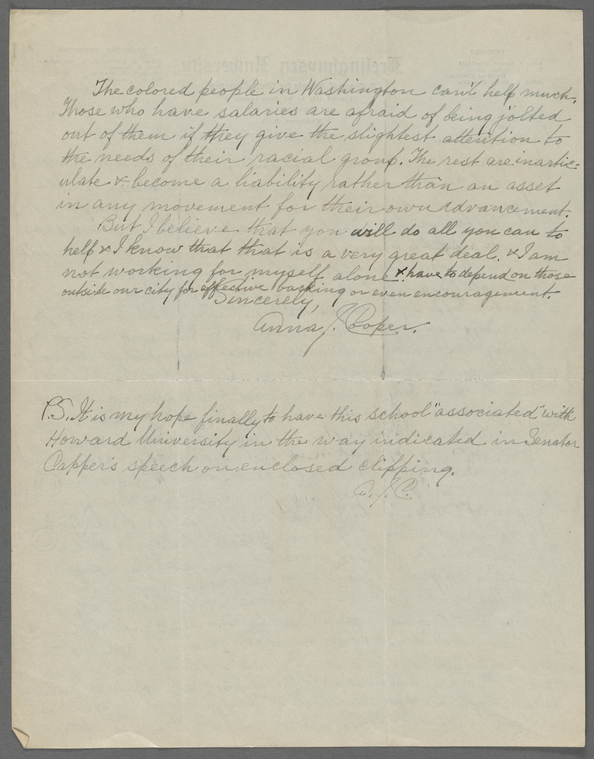 The colored people in Washington can't help much.
Those who have salaries are afraid of being jolted
out of them if they give the slightest attention to
the needs of their racial group. The rest are inartic-
ulate & become a liability rather than an asset
in any movement for their own advancement.
But I believe that you will do all you can to
help & I know that that is a very great deal. & I am
not working for myself alone & have to depend on those
outside our city for effective backing or even encouragement.
Sincerely,
Anna J. Coper.
P.S. It is my hope finally to have this school "associated" with
Howard University in the way indicated in Senator
Capper's speech on enclosed clipping.
A. J. C.